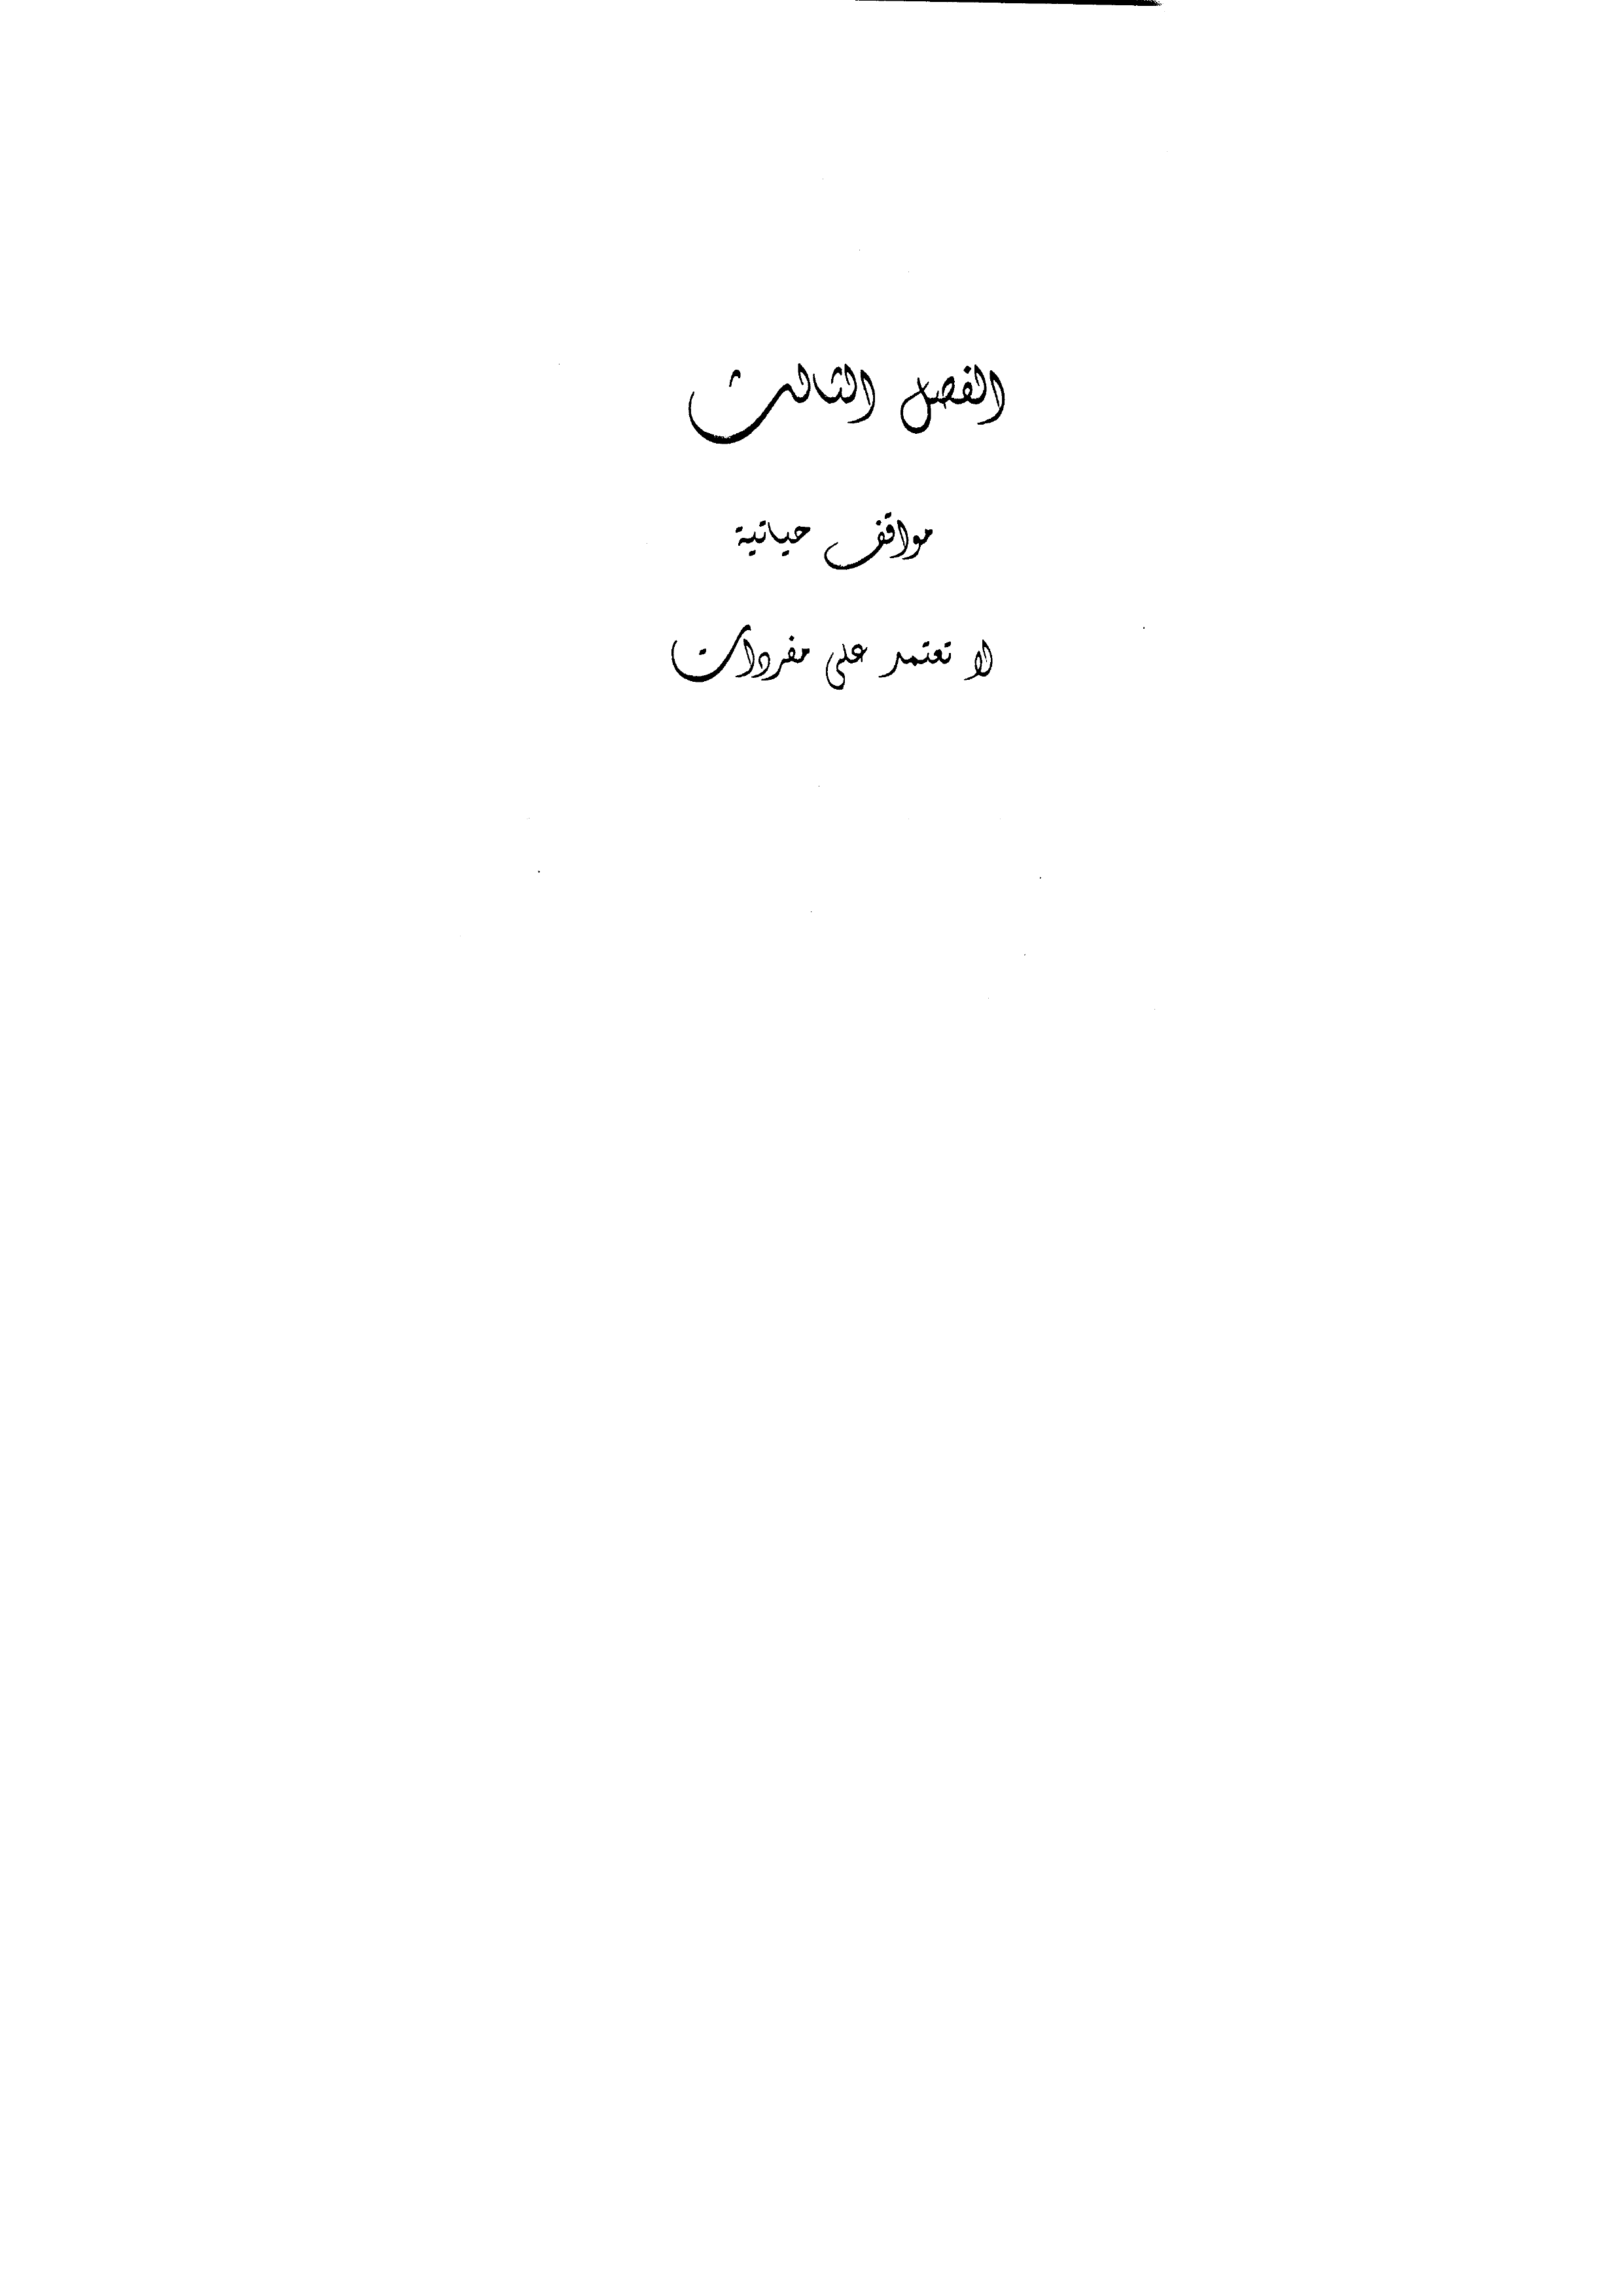 الفصل الثالث
مواقف حياتية
لا تعتمد على مفردات